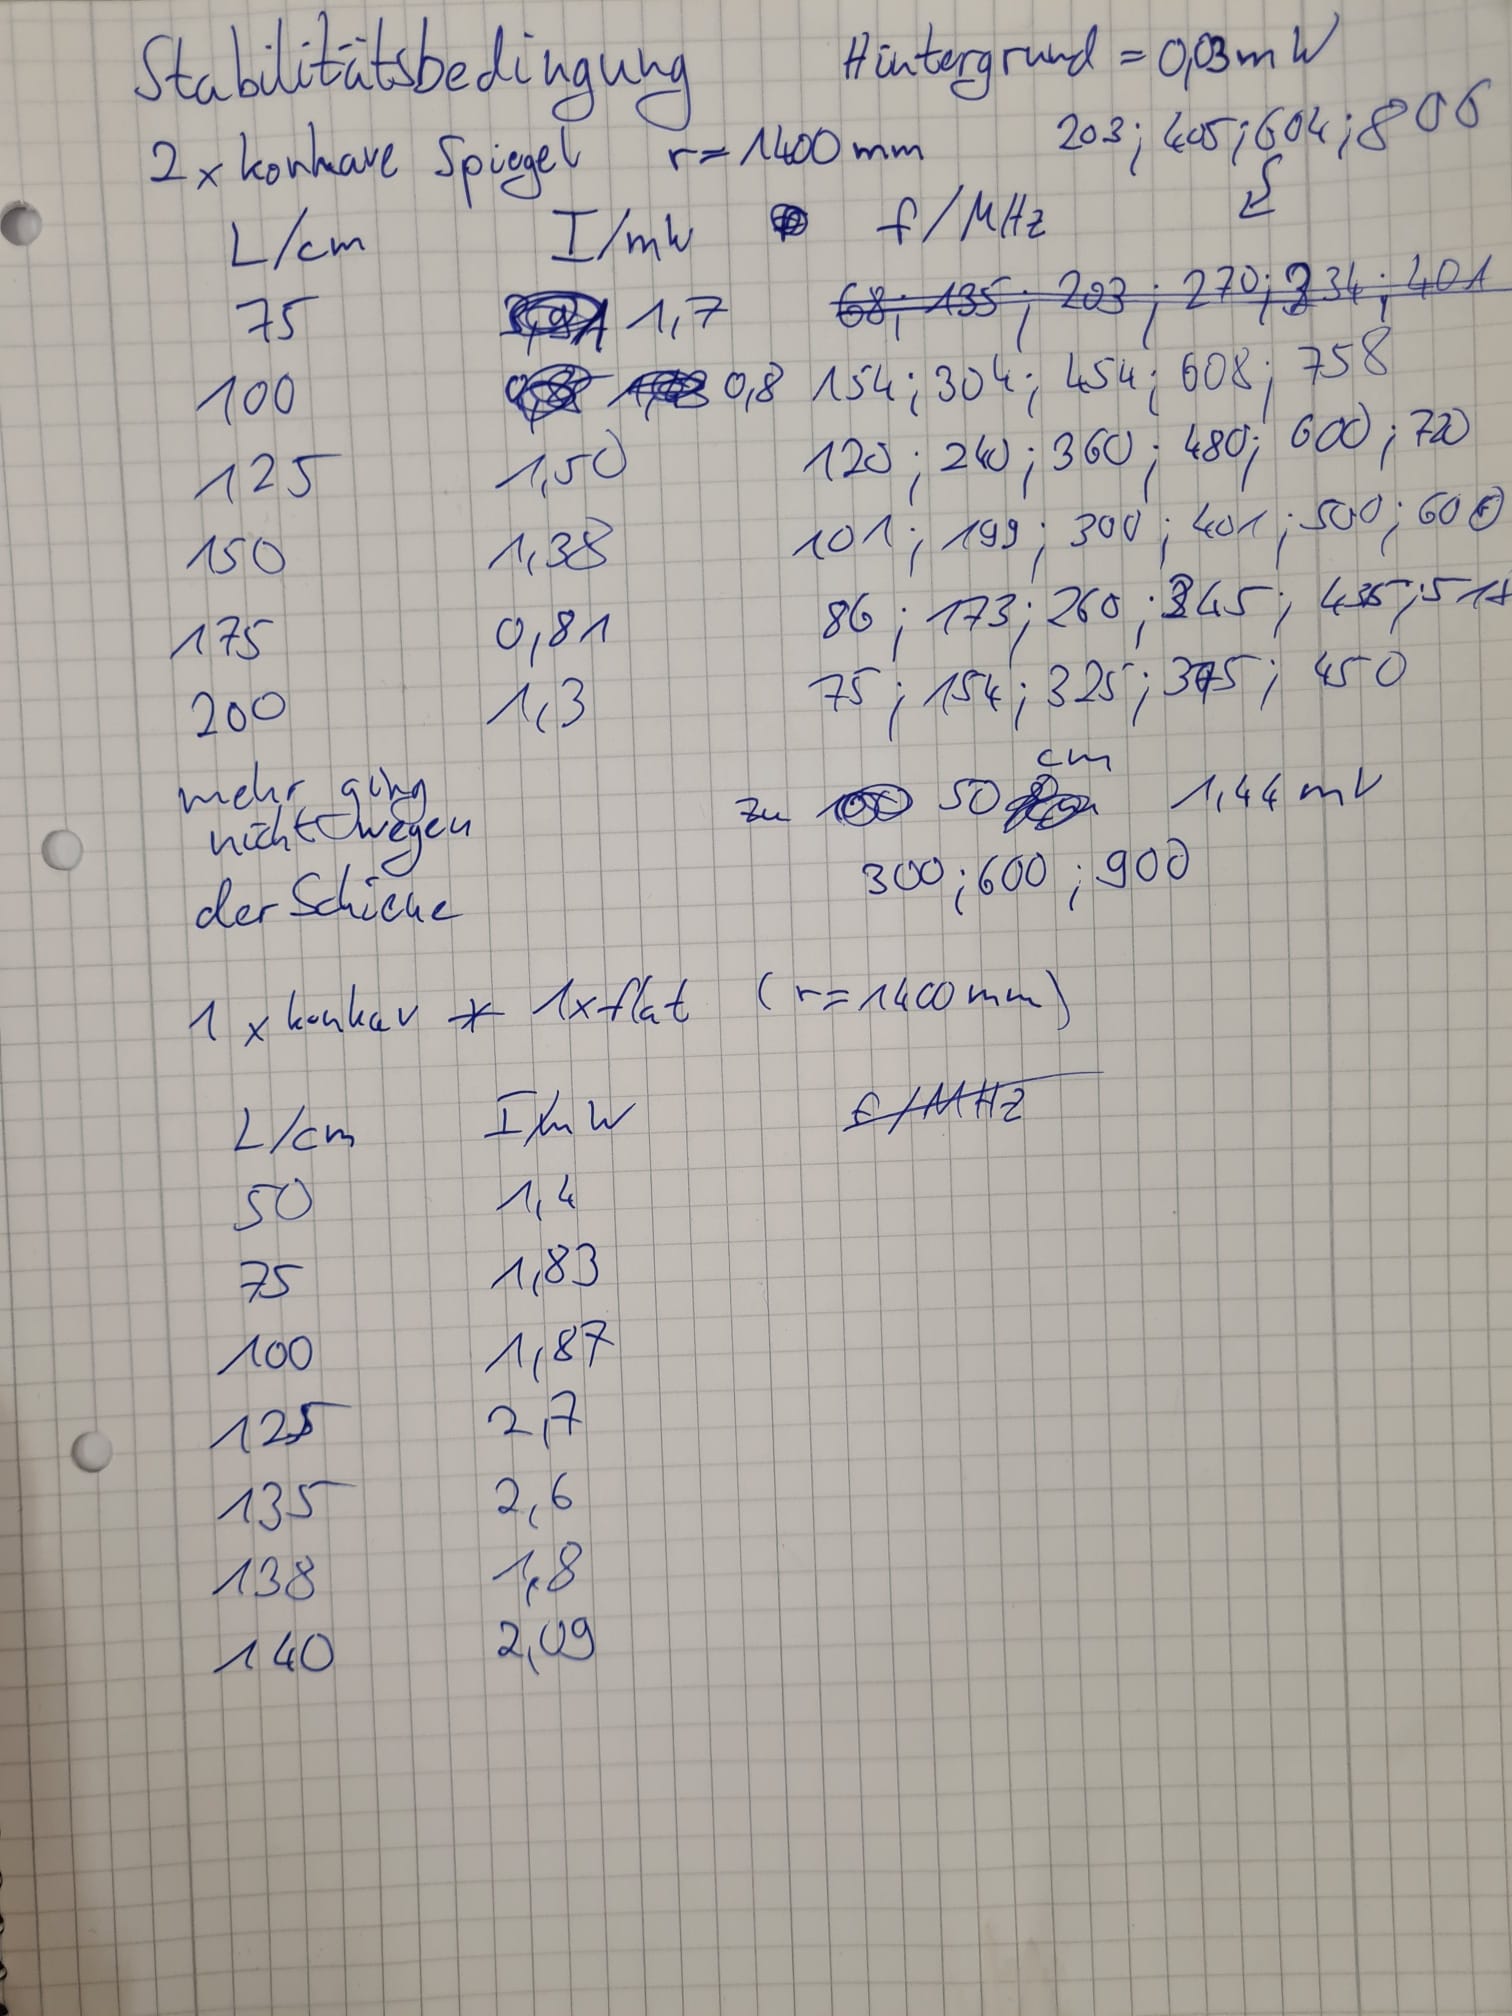 Stabilitätsbedingung Hintergrund = 0,03 mW
2 x konkave Spiegel r = 1400 mm 203; 405; 604; 806
L/cm I/mW f/MHz
75 1,7 68; 135; 203; 270; 334; 401
100 0,8 154; 304; 454; 608; 758
125 1,50 120; 240; 360; 480; 600; 720
150 1,38 101; 199; 300; 401; 500; 600
175 0,81 86; 173; 260; 345; 435; 518
200 1,3 75; 154; 325; 375; 450
mehr ging
nicht wegen
der Schiene
zu 50 cm 1,44 mW
300; 600; 900
1 x konkav + 1x flat (r = 1400 mm)
L/cm I/mW f/MHz
50 1,4
75 1,83
100 1,87
125 2,7
135 2,6
138 1,8
140 2,09